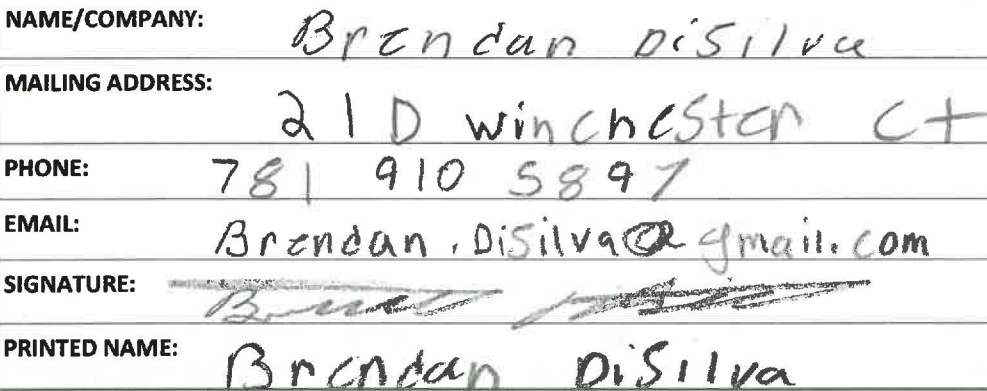 NAME/COMPANY: Brendan DiSilva
MAILING ADDRESS: 21D Winchester Ct
PHONE: 781 910 5897
EMAIL: Brendan.DiSilva@gmail.com
SIGNATURE:
PRINTED NAME: Brendan DiSilva